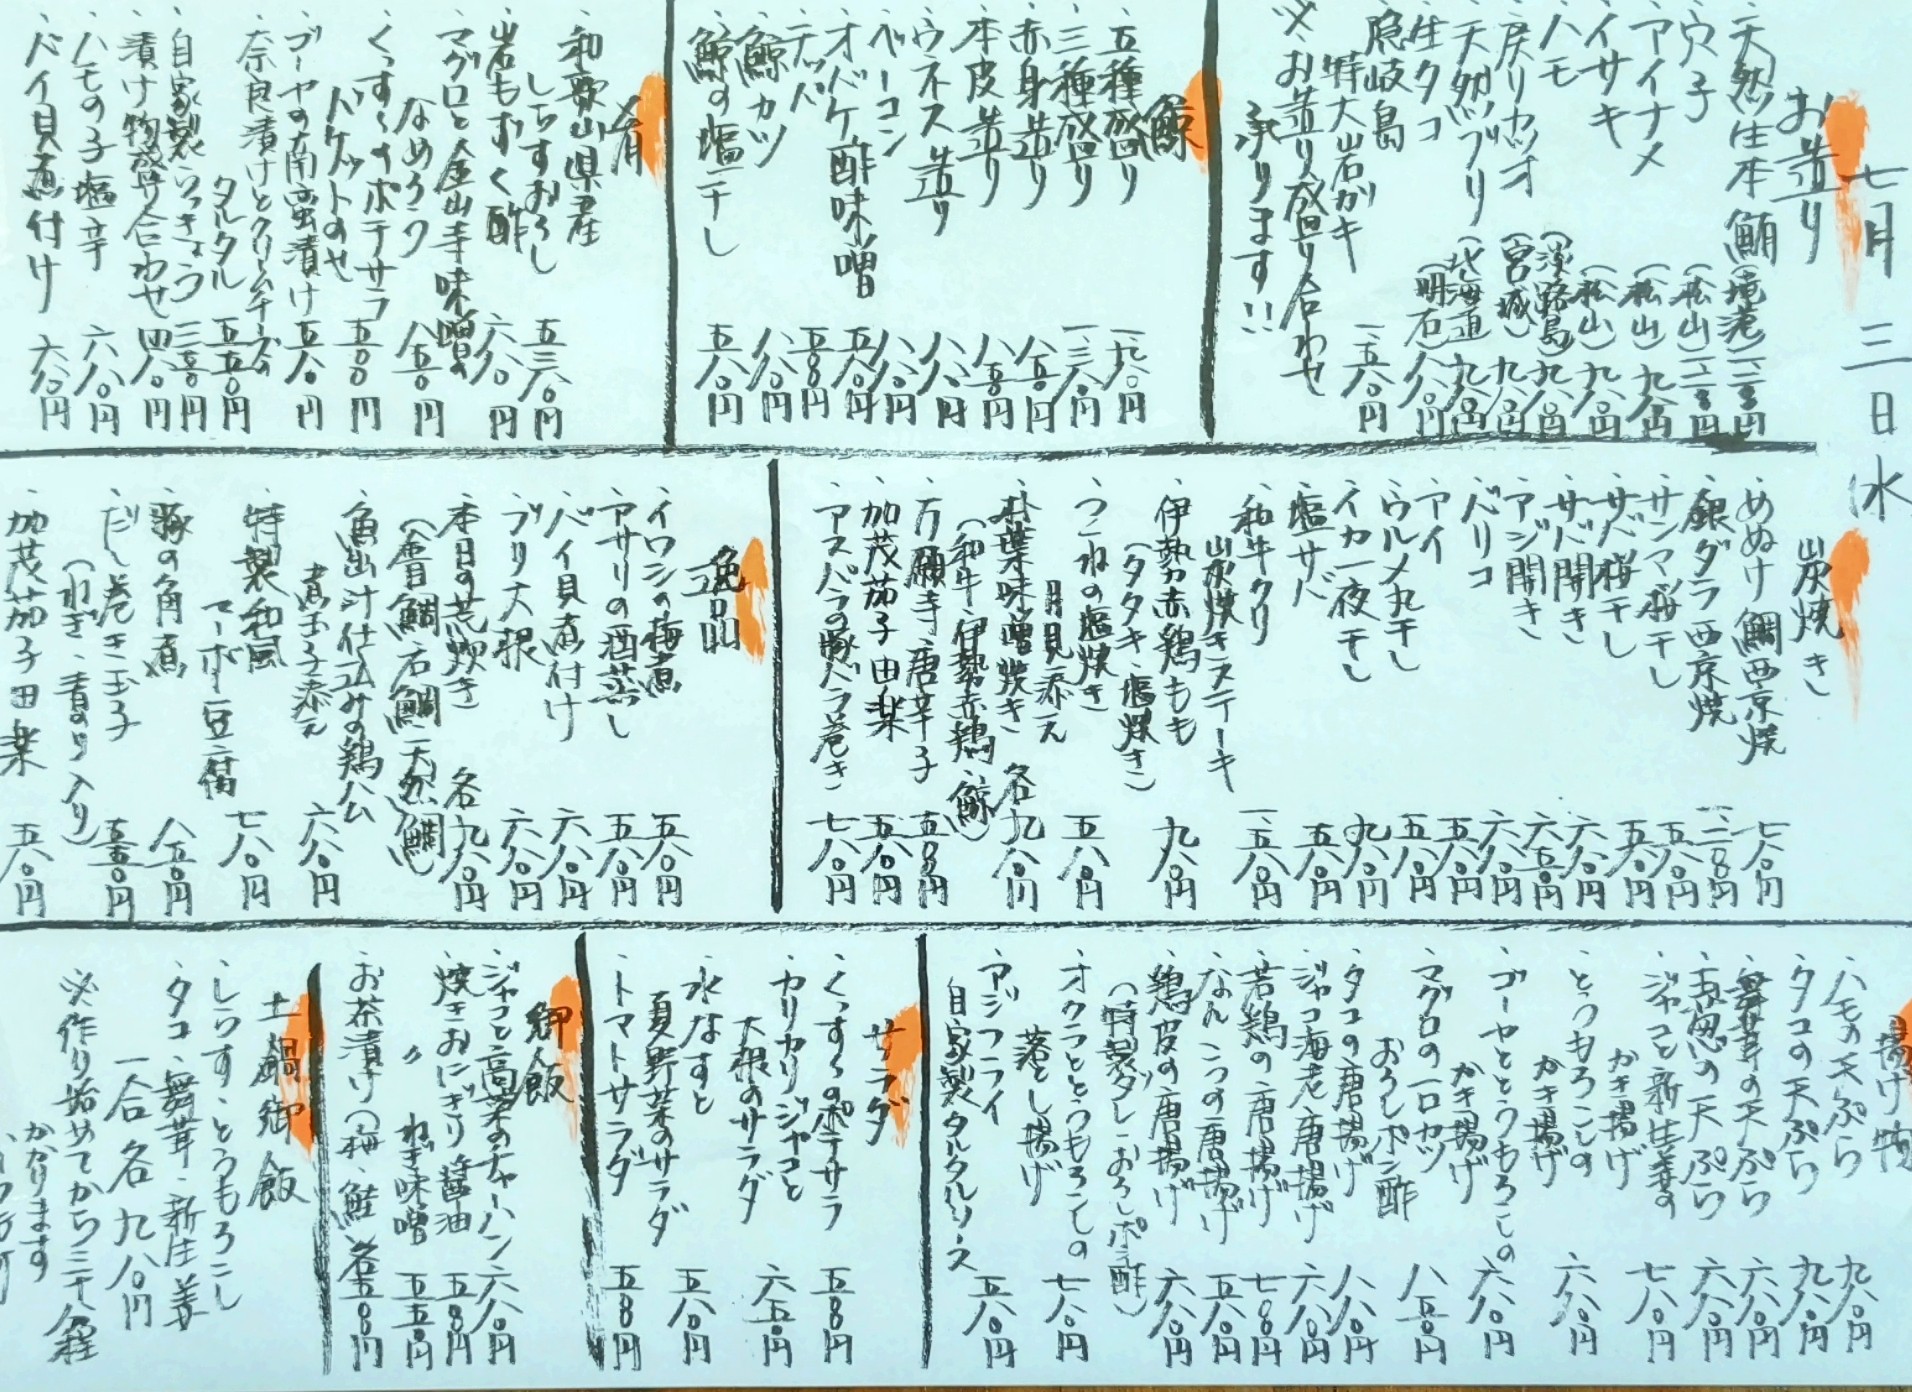 七月三日水
お造り
、天然生本鮪(塩釜)一二八〇円
、穴子(松山)一二八〇円
、アイナメ(松山)九八〇円
、イサキ(松山)九八〇円
、ハモ(淡路島)九八〇円
、戻りカツオ(宮城)九八〇円
、天然ブリ(北海道)九八〇円
、生タコ(明石)八八〇円
、隠岐島
特大岩ガキ 一、五八〇円
※お造り盛り合わせ
承ります!!
鯨
、五種盛り 一、九八〇円
、三種盛り 一、三八〇円
、赤身造り 八五〇円
、本皮造り 八五〇円
、ウネス造り 八八〇円
、ベーコン 八八〇円
、オバケ酢味噌 五八〇円
、テッパ 五八〇円
、鯨カツ 八八〇円
、鯨の塩干し 五八〇円
肴
、和歌山県産
しらすおろし 五三〇円
、岩もずく酢 六八〇円
、マグロと金山寺味噌の
なめろう 八五〇円
、くっすんのポテサラ
バケットのせ 五八〇円
、ゴーヤの南蛮漬け 五八〇円
、奈良漬けとクリームチーズの
タルタル 五五〇円
、自家製らっきょう 三五〇円
、漬け物盛り合わせ 四八〇円
、ハモの子塩辛 六八〇円
、バイ貝煮付け 六八〇円
炭焼き
、めぬけ鯛西京焼 七八〇円
、銀ダラ西京焼 一、二八〇円
、サンマ桜干し 五八〇円
、サバ桜干し 五八〇円
、サバ開き 六八〇円
、アジ開き 六五〇円
、バリコ 六八〇円
、アイ 五八〇円
、ウルメ丸干し 五八〇円
、イカ一夜干し 九八〇円
、塩サバ 五八〇円
、和牛クリ
炭焼きステーキ 一、五八〇円
、伊勢赤鶏もも
(タタキ・塩焼き) 九八〇円
、つくねの塩焼き
月見添え 五八〇円
、朴葉味噌焼き 各九八〇円
(和牛・伊勢赤鶏・鯨)
、万願寺唐辛子 五八〇円
、加茂茄子田楽 五八〇円
、アスパラの豚バラ巻き 七八〇円
逸品
、イワシの梅煮 五八〇円
、アサリの酒蒸し 五八〇円
、バイ貝煮付け 六八〇円
、ブリ大根 六八〇円
、本日の荒炊き 各九八〇円
(石鯛・天然鯛)
、魚出汁仕込みの鶏ハム
煮玉子添え 六八〇円
、特製和風
マーボー豆腐 七八〇円
、豚の角煮 八五〇円
、だし巻き玉子
(ねぎ・青のり入り) 五五〇円
、加茂茄子田楽 五八〇円
揚げ物
、ハモの天ぷら 九八〇円
、タコの天ぷら 九八〇円
、舞茸の天ぷら 六八〇円
、玉葱の天ぷら 六八〇円
、ジャコと新生姜の
かき揚げ 七八〇円
、とうもろこしの
かき揚げ 六八〇円
、ゴーヤととうもろこしの
かき揚げ 六八〇円
、マグロの一口カツ
おろしポン酢 八五〇円
、タコの唐揚げ 八八〇円
、ジャコ海老唐揚げ 六八〇円
、若鶏の唐揚げ 七八〇円
、なんこつの唐揚げ 五八〇円
、鶏皮の唐揚げ 六八〇円
(特製ダレ・おろしポン酢)
、オクラととうもろこしの
落とし揚げ 七八〇円
、アジフライ
自家製タルタルソース 五八〇円
サラダ
、くっすんのポテサラ 五八〇円
、カリカリジャコと
大根のサラダ 六五〇円
、水なすと
夏野菜のサラダ 五八〇円
、トマトサラダ 五八〇円
御飯
、ジャコと高菜のチャーハン 六八〇円
、焼きおにぎり醤油 五八〇円
〃 ねぎ味噌 五五〇円
、お茶漬け(梅・鮭)各五八〇円
土鍋御飯
、しらす・とうもろこし
、タコ・舞茸・新生姜
一合 各九八〇円
※作り始めてから三十分程
かかります